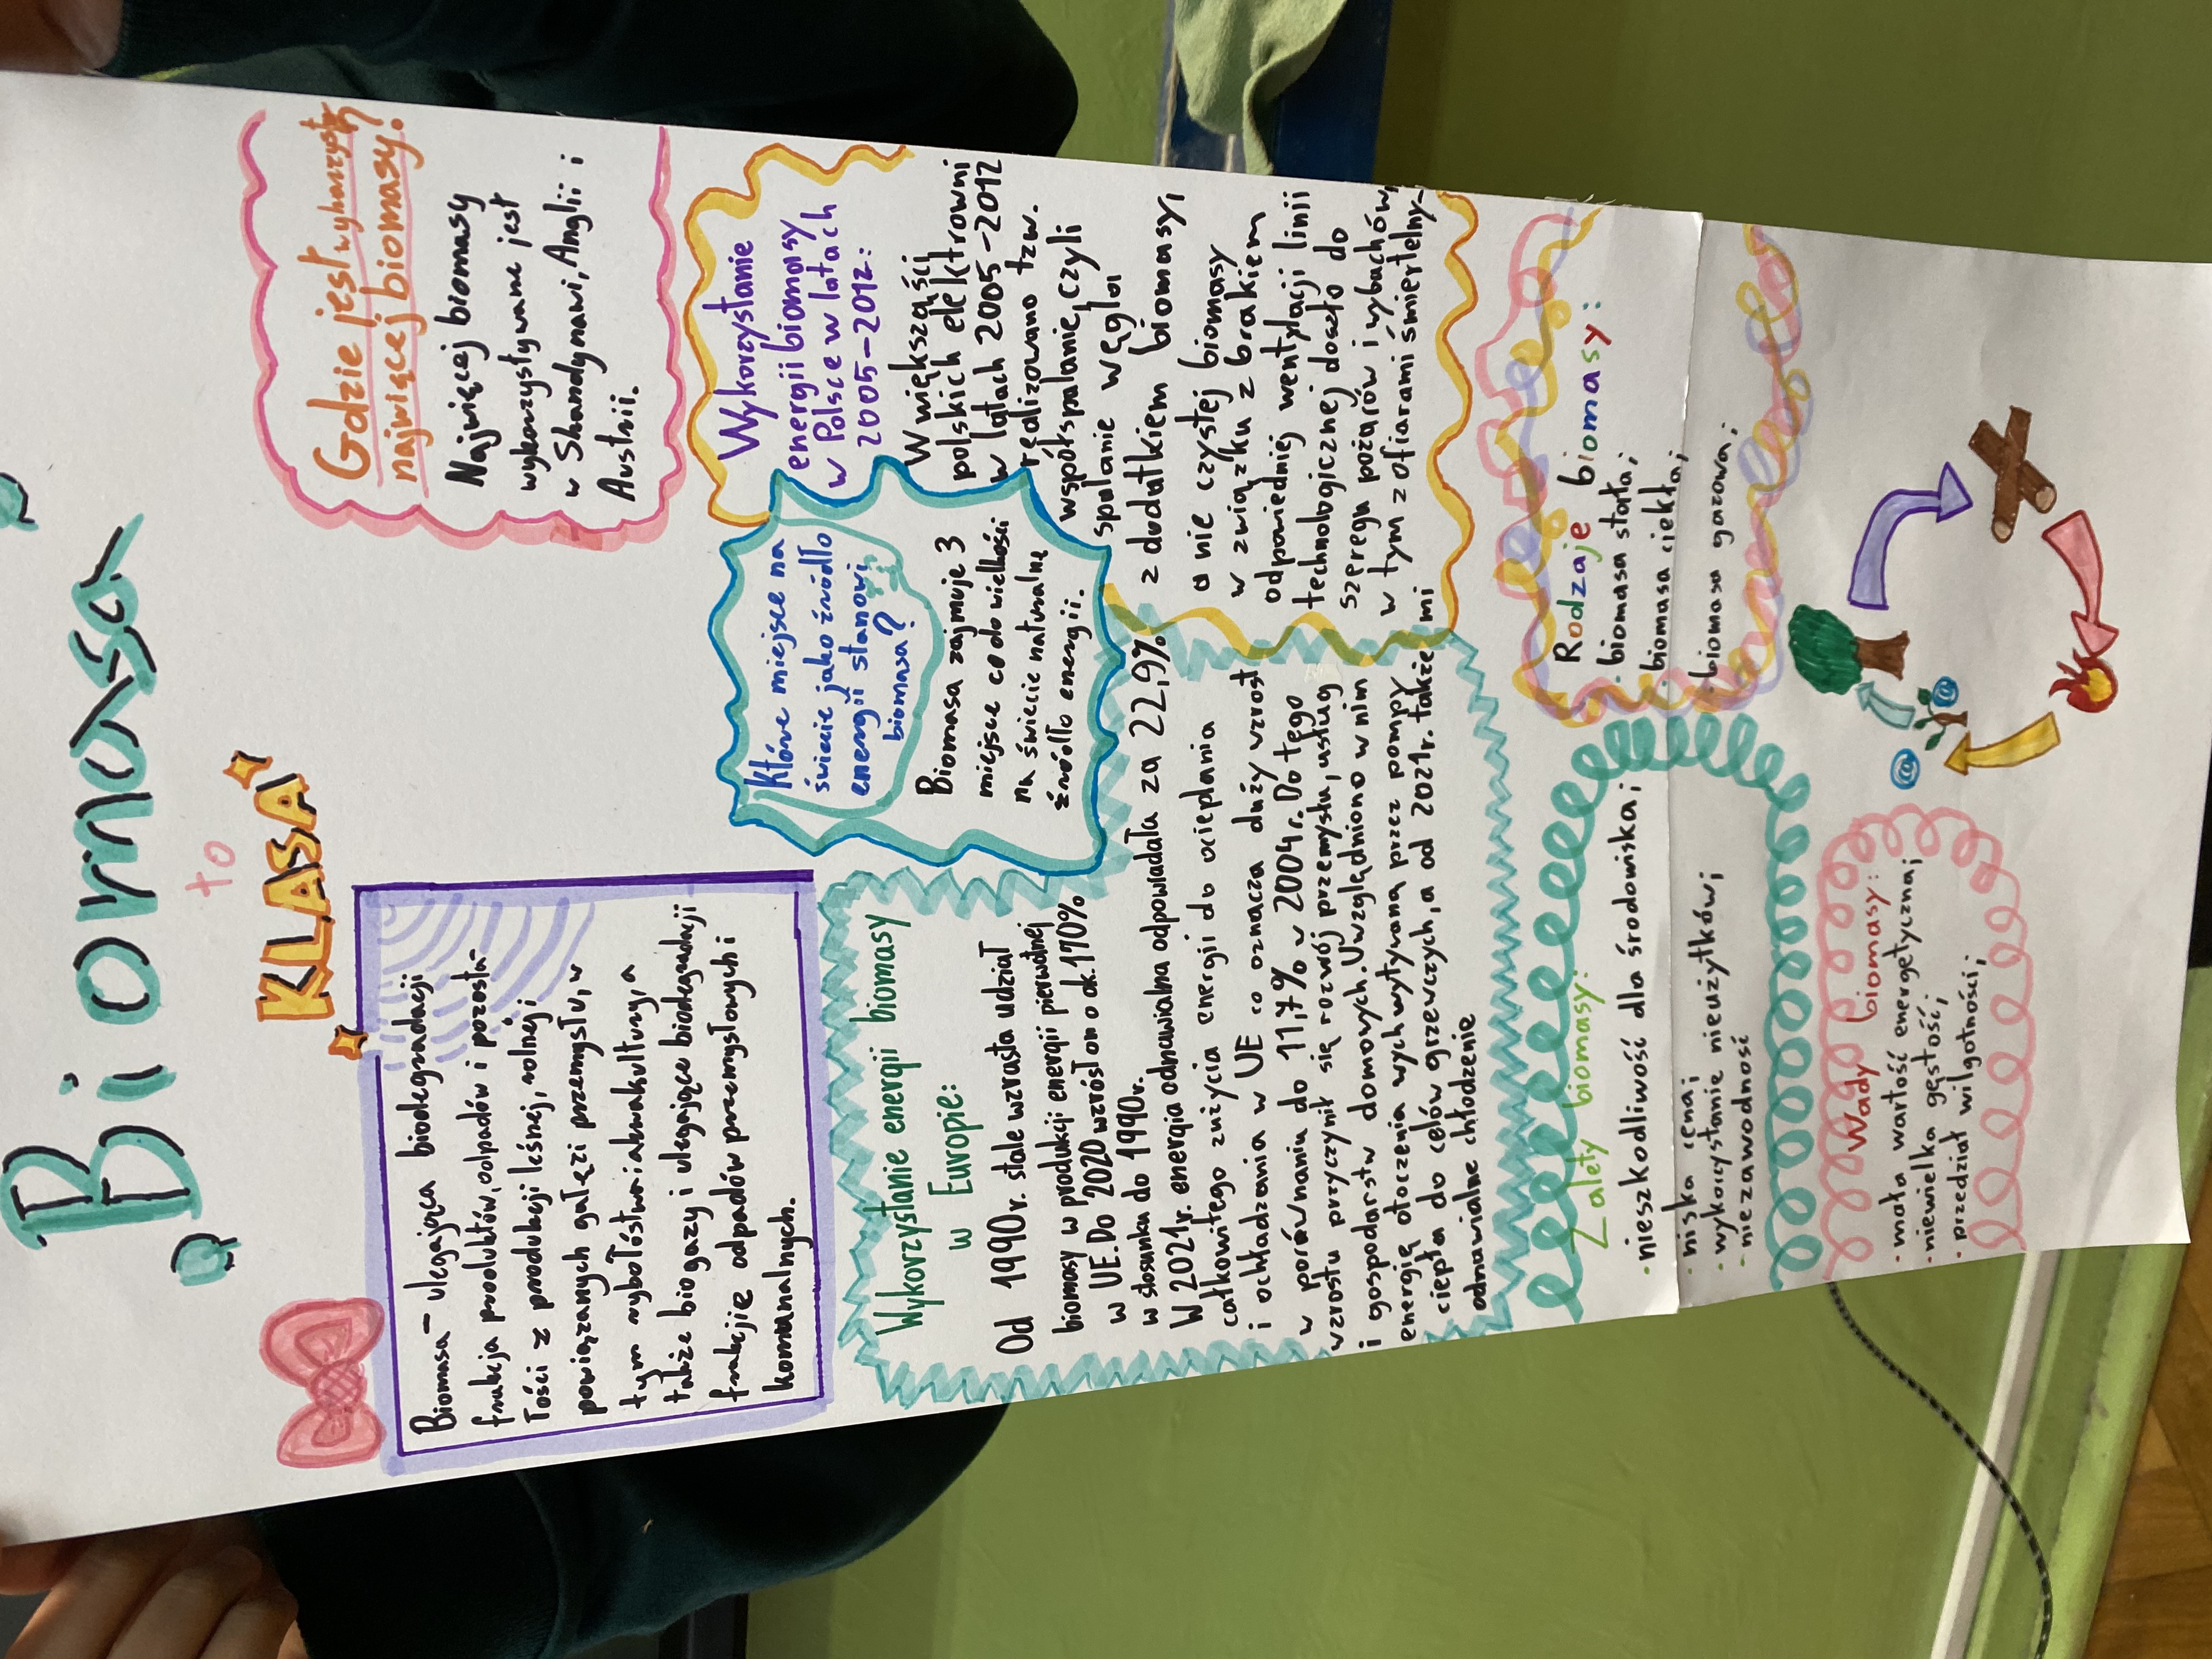 Biomasa
to
KLASA
Biomasa - ulegająca biodegradacji
frakcja produktów, odpadów i pozosta-
łości z produkcji leśnej, rolnej i
powiązanych gałęzi przemysłu, w
tym rybołóstwa i akwakultury, a
także biogazy i ulegające biodegradacji
frakcje odpadów przemysłowych i
komunalnych.
Gdzie jest wykorzysty
najwięcej biomasy?
Najwięcej biomasy
wykorzystywane jest
w Skandynawi, Anglii i
Austrii.
Które miejsce na
świecie jako źródło
energii stanowi
biomasa?
Biomasa zajmuje 3
miejsce co do wielkości
na świecie naturalne
źródło energii.
Wykorzystanie
energii biomasy
w Polsce w latach
2005-2012:
W większości
polskich elektrowni
w latach 2005-2012
realizowano tzw.
współspalanie, czyli
spalanie węgla
z dodatkiem biomasy,
a nie czystej biomasy
w związku z brakiem
odpowiedniej wentylacji linii
technologicznej doszło do
szeregu pożarów i wybuchów,
w tym z ofiarami śmiertelny-
mi
Wykorzystanie energii biomasy
w Europie:
Od 1990r. stale wzrasta udział
biomasy w produkcji energii pierwotnej
w UE. Do 2020 wzrósł on o ok. 170%
w stosunku do 1990r.
W 2021r. energia odnawialna odpowiadała za 22,9%
całkowitego zużycia energii do ocieplania
i ochładzania w UE co oznacza duży wzrost
w porównaniu do 11,7% w 2004r. Do tego
wzrostu przyczynił się rozwój przemysłu, usług
i gospodarstw domowych. Uwzględniono w nim
energię otoczenia wychwytywaną przez pompy
ciepła do celów grzewczych, a od 2021r. także
odnawialne chłodzenie
Rodzaje biomasy:
· biomasa stała;
· biomasa ciekła;
· biomasa gazowa;
Zalety biomasy:
· nieszkodliwość dla środowiska;
· niska cena;
· wykorzystanie nieużytków;
· niezawodność
Wady biomasy:
· mała wartość energetyczna;
· niewielka gęstość;
· przedział wilgotności;